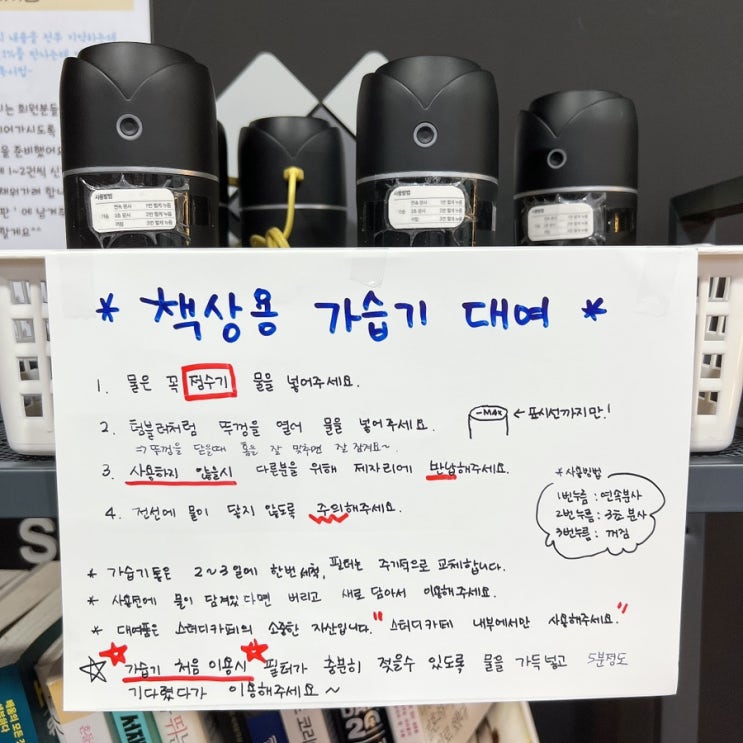 * 책상용 가습기 대여 *
1. 물은 꼭 정수기 물을 넣어주세요.
2. 텀블러처럼 뚜껑을 열어 물을 넣어주세요.
-MAX ← 표시선까지만!
⇒ 뚜껑을 닫을때 홈을 잘 맞추면 잘 잠겨요~
3. 사용하지 않을시 다른분을 위해 제자리에 반납해주세요.
4. 전선에 물이 닿지 않도록 주의해주세요.
* 사용방법
1번누름 : 연속분사
2번누름 : 3초 분사
3번누름 : 꺼짐
* 가습기통은 2~3일에 한번 세척, 필터는 주기적으로 교체합니다.
* 사용전에 물이 담겨있다면 버리고 새로 담아서 이용해주세요.
* 대여품은 스터디카페의 소중한 자산입니다. "스터디카페 내부에서만 사용해주세요."
☆ ★ 가습기 처음 이용시 ★ 필터가 충분히 젖을수 있도록 물을 가득넣고 5분정도
기다렸다가 이용해주세요~